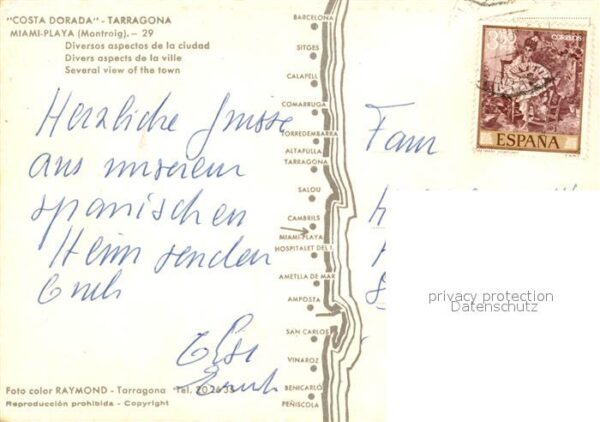 "COSTA DORADA" - TARRAGONA
MIAMI-PLAYA (Montroig). - 29
Diversos aspectos de la ciudad
Divers aspects de la ville
Several view of the town
Herzliche Grüsse
aus unserem
spanischen
Heim senden
Euch
Else
Foto color RAYMOND - Tarragona Tel.
Reproducción prohibida - Copyright
BARCELONA
SITGES
CALAFELL
COMARRUGA
TORREDEMBARRA
ALTAFULLA
TARRAGONA
SALOU
CAMBRILS
MIAMI-PLAYA
HOSPITALET DEL I.
AMETLLA DE MAR
AMPOSTA
SAN CARLOS
VINAROZ
BENICARLÓ
PEÑISCOLA
3,50 CORREOS
ESPAÑA
Fam
privacy protection
Datenschutz